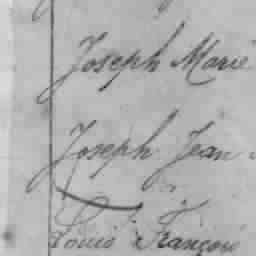 Joseph Marie
Joseph Jean
Louis François